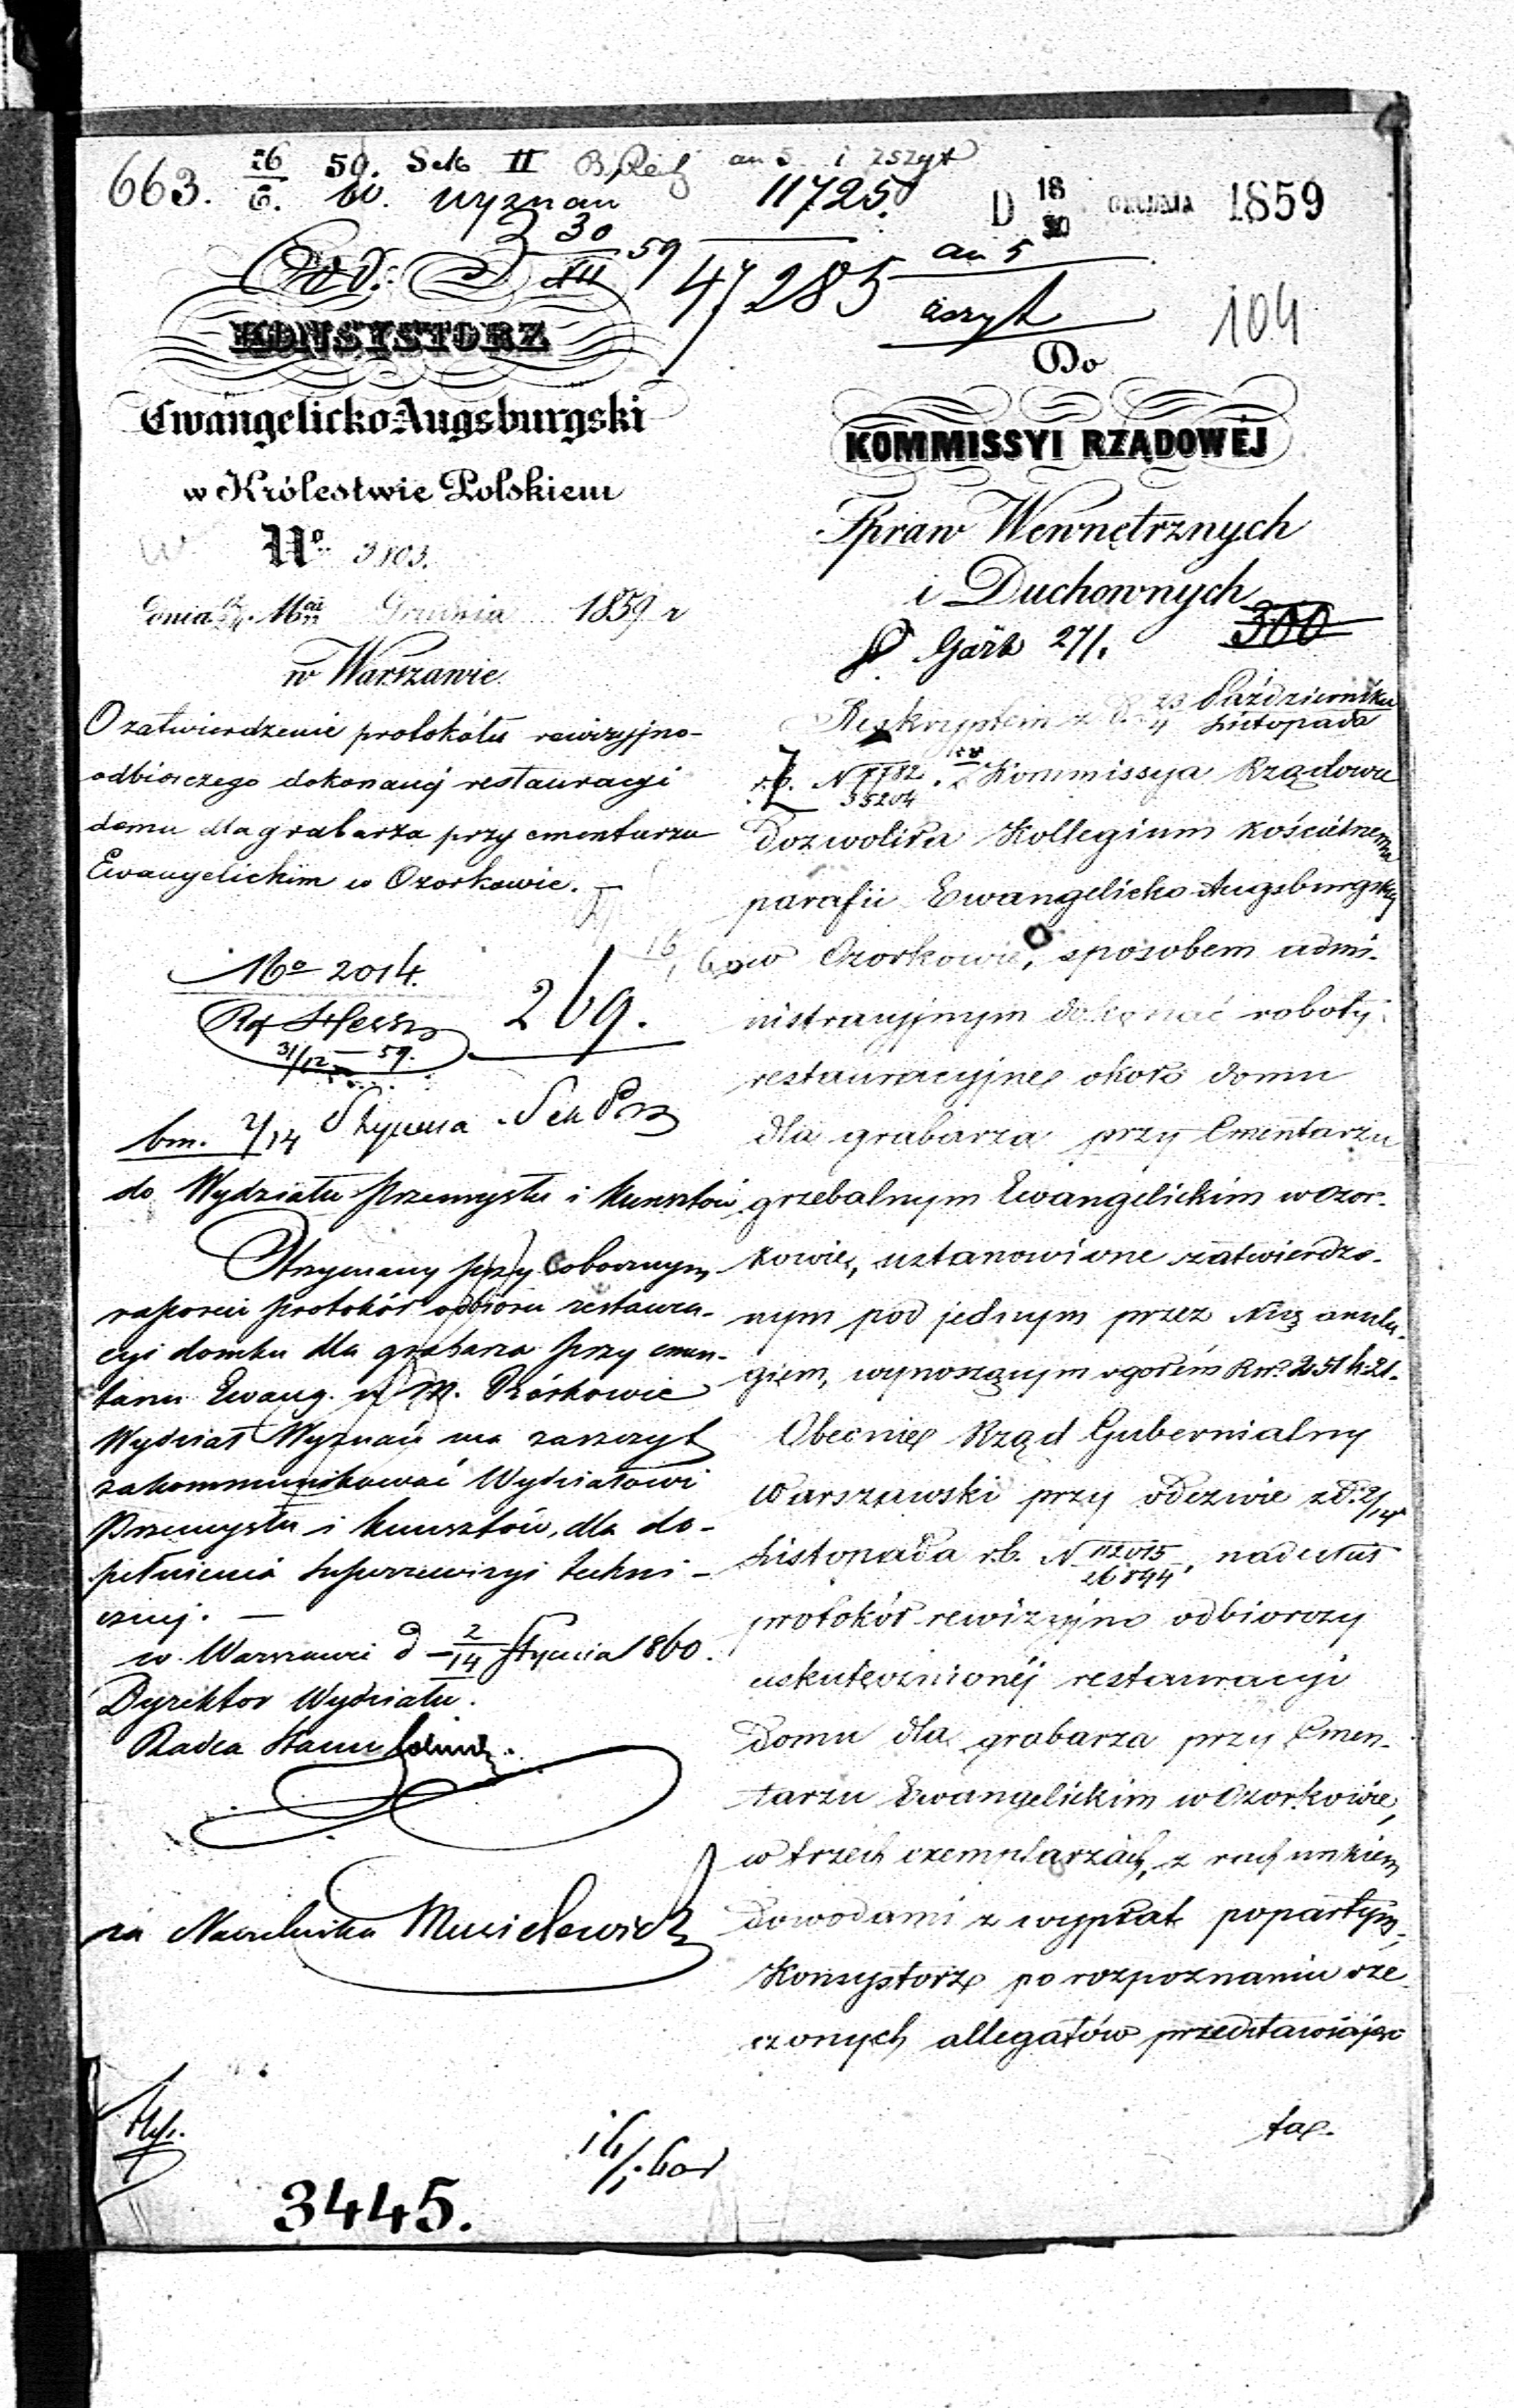 663. 16/6. 59. Sek II an 5 i zszyt
W. wyznan 11725.
D 18/30 GRUDNIA 1859
30/XII 59 47285 an 5
zszyt
104
KONSYSTORZ
Ewangelicko-Augsburgski
w Królestwie Polskiem
No. 3103.
Dnia Grudnia 1859 r
w Warszawie.
O zatwierdzenie protokółu rewizyjno-
odbiorczego dokonanéj restauracyi
domu dla grabarza przy cmentarzu
Ewangelickim w Ozorkowie. —
No 2014.
31/12 — 59.
269.
bm. 2/14 Stycznia
do Wydziału Przemysłu i Kunsztów
Otrzymany przy obocznym
raporcie protokół odbioru restaura-
cyi domku dla grabarza przy cmen-
tarzu Ewang. w m. Ozorkowie
Wydział Wyznań ma zaszczyt
zakommunikować Wydziałowi
Przemysłu i Kunsztów, dla do-
pełnienia superrewizyi techni-
cznej. —
w Warszawie d — 2/14 Stycznia 1860.
Dyrektor Wydziału.
Radca Stanu
za Naczelnika
3445.
Do
KOMMISSYI RZĄDOWÉJ
Spraw Wewnętrznych
i Duchownych
300
Reskryptem z d. 23 Października / 4 Listopada
r.b. N 7782/35204 Kommissya Rządowa
dozwoliła Kollegium Kościelnemu
parafii Ewangelicko-Augsburgskiéj
w Ozorkowie, sposobem admi-
nistracyjnym dokonać roboty
restauracyjne około domu
dla grabarza przy Cmentarzu
grzebalnym Ewangelickim w Ozor-
kowie, ustanowione zatwierdzo-
nym pod jednym przez Nią anszla-
giem, wynoszącym ogółem Rsr. 251 k. 21.
Obecnie Rząd Gubernialny
Warszawski przy odezwie z d. 2/14
Listopada r.b. N 112015/26844, nadesłał
protokół rewizyjno odbiorczy
uskutecznionéj restauracyi
domu dla grabarza przy Cmen-
tarzu Ewangelickim w Ozorkowie,
w trzech exemplarzach, z rachunkiem
dowodami z wypłat popartym,
Konsystorz po rozpoznaniu rze-
czonych allegatów przedstawiając